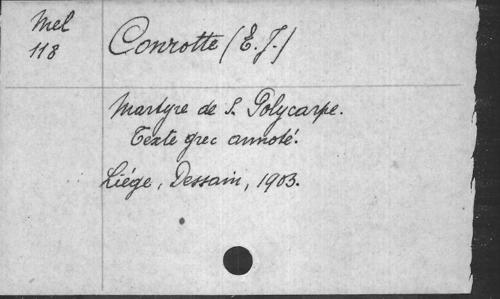 Mel
118
Conrotte (E. J.)
Martyre de S. Polycarpe.
Texte grec annoté.
Liége, Dessain, 1903.